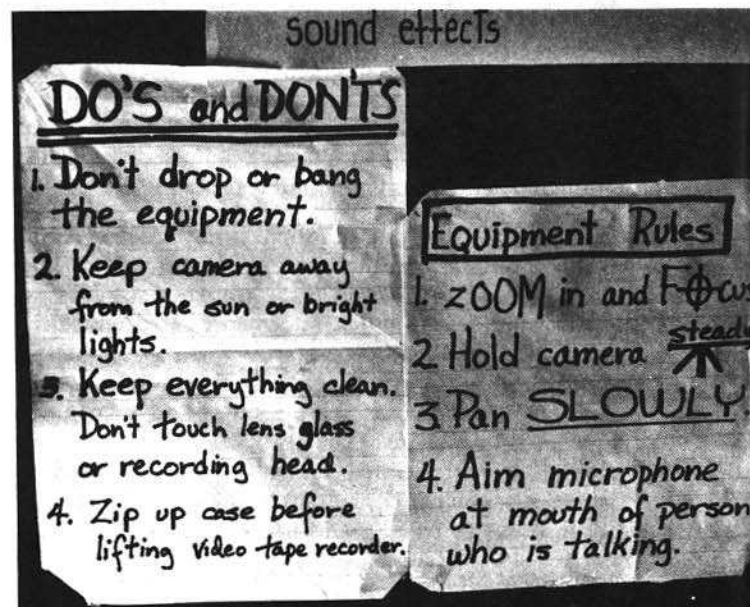 sound effects
DO'S and DON'TS
1. Don't drop or bang
the equipment.
2. Keep camera away
from the sun or bright
lights.
3. Keep everything clean.
Don't touch lens glass
or recording head.
4. Zip up case before
lifting video tape recorder.
Equipment Rules
1. ZOOM in and Focu
2 Hold camera stead
3. Pan SLOWLY
4. Aim microphone
at mouth of person
who is talking.